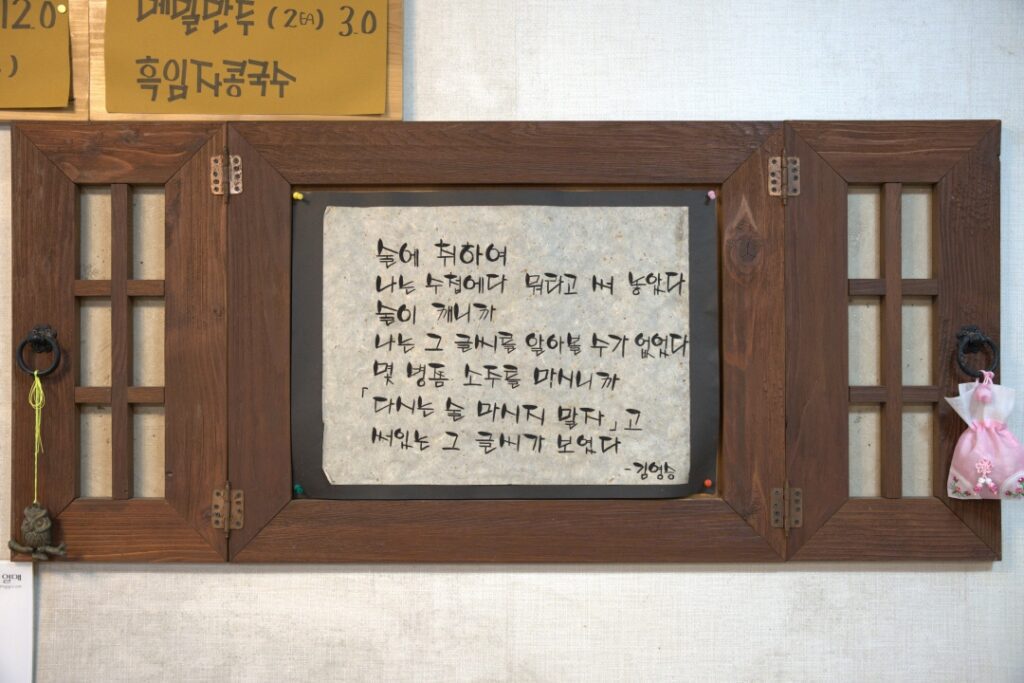 12.0
메밀만두 (2EA) 3.0
)
흑임자콩국수
술에 취하여
나는 수첩에다 뭐라고 써 놓았다
술이 깨니까
나는 그 글씨를 알아볼 수가 없었다
몇 병쯤 소주를 마시니까
「다시는 술 마시지 말자」고
써있는 그 글씨가 보였다
-김영승
열매